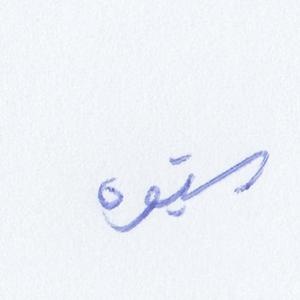 سیتوه